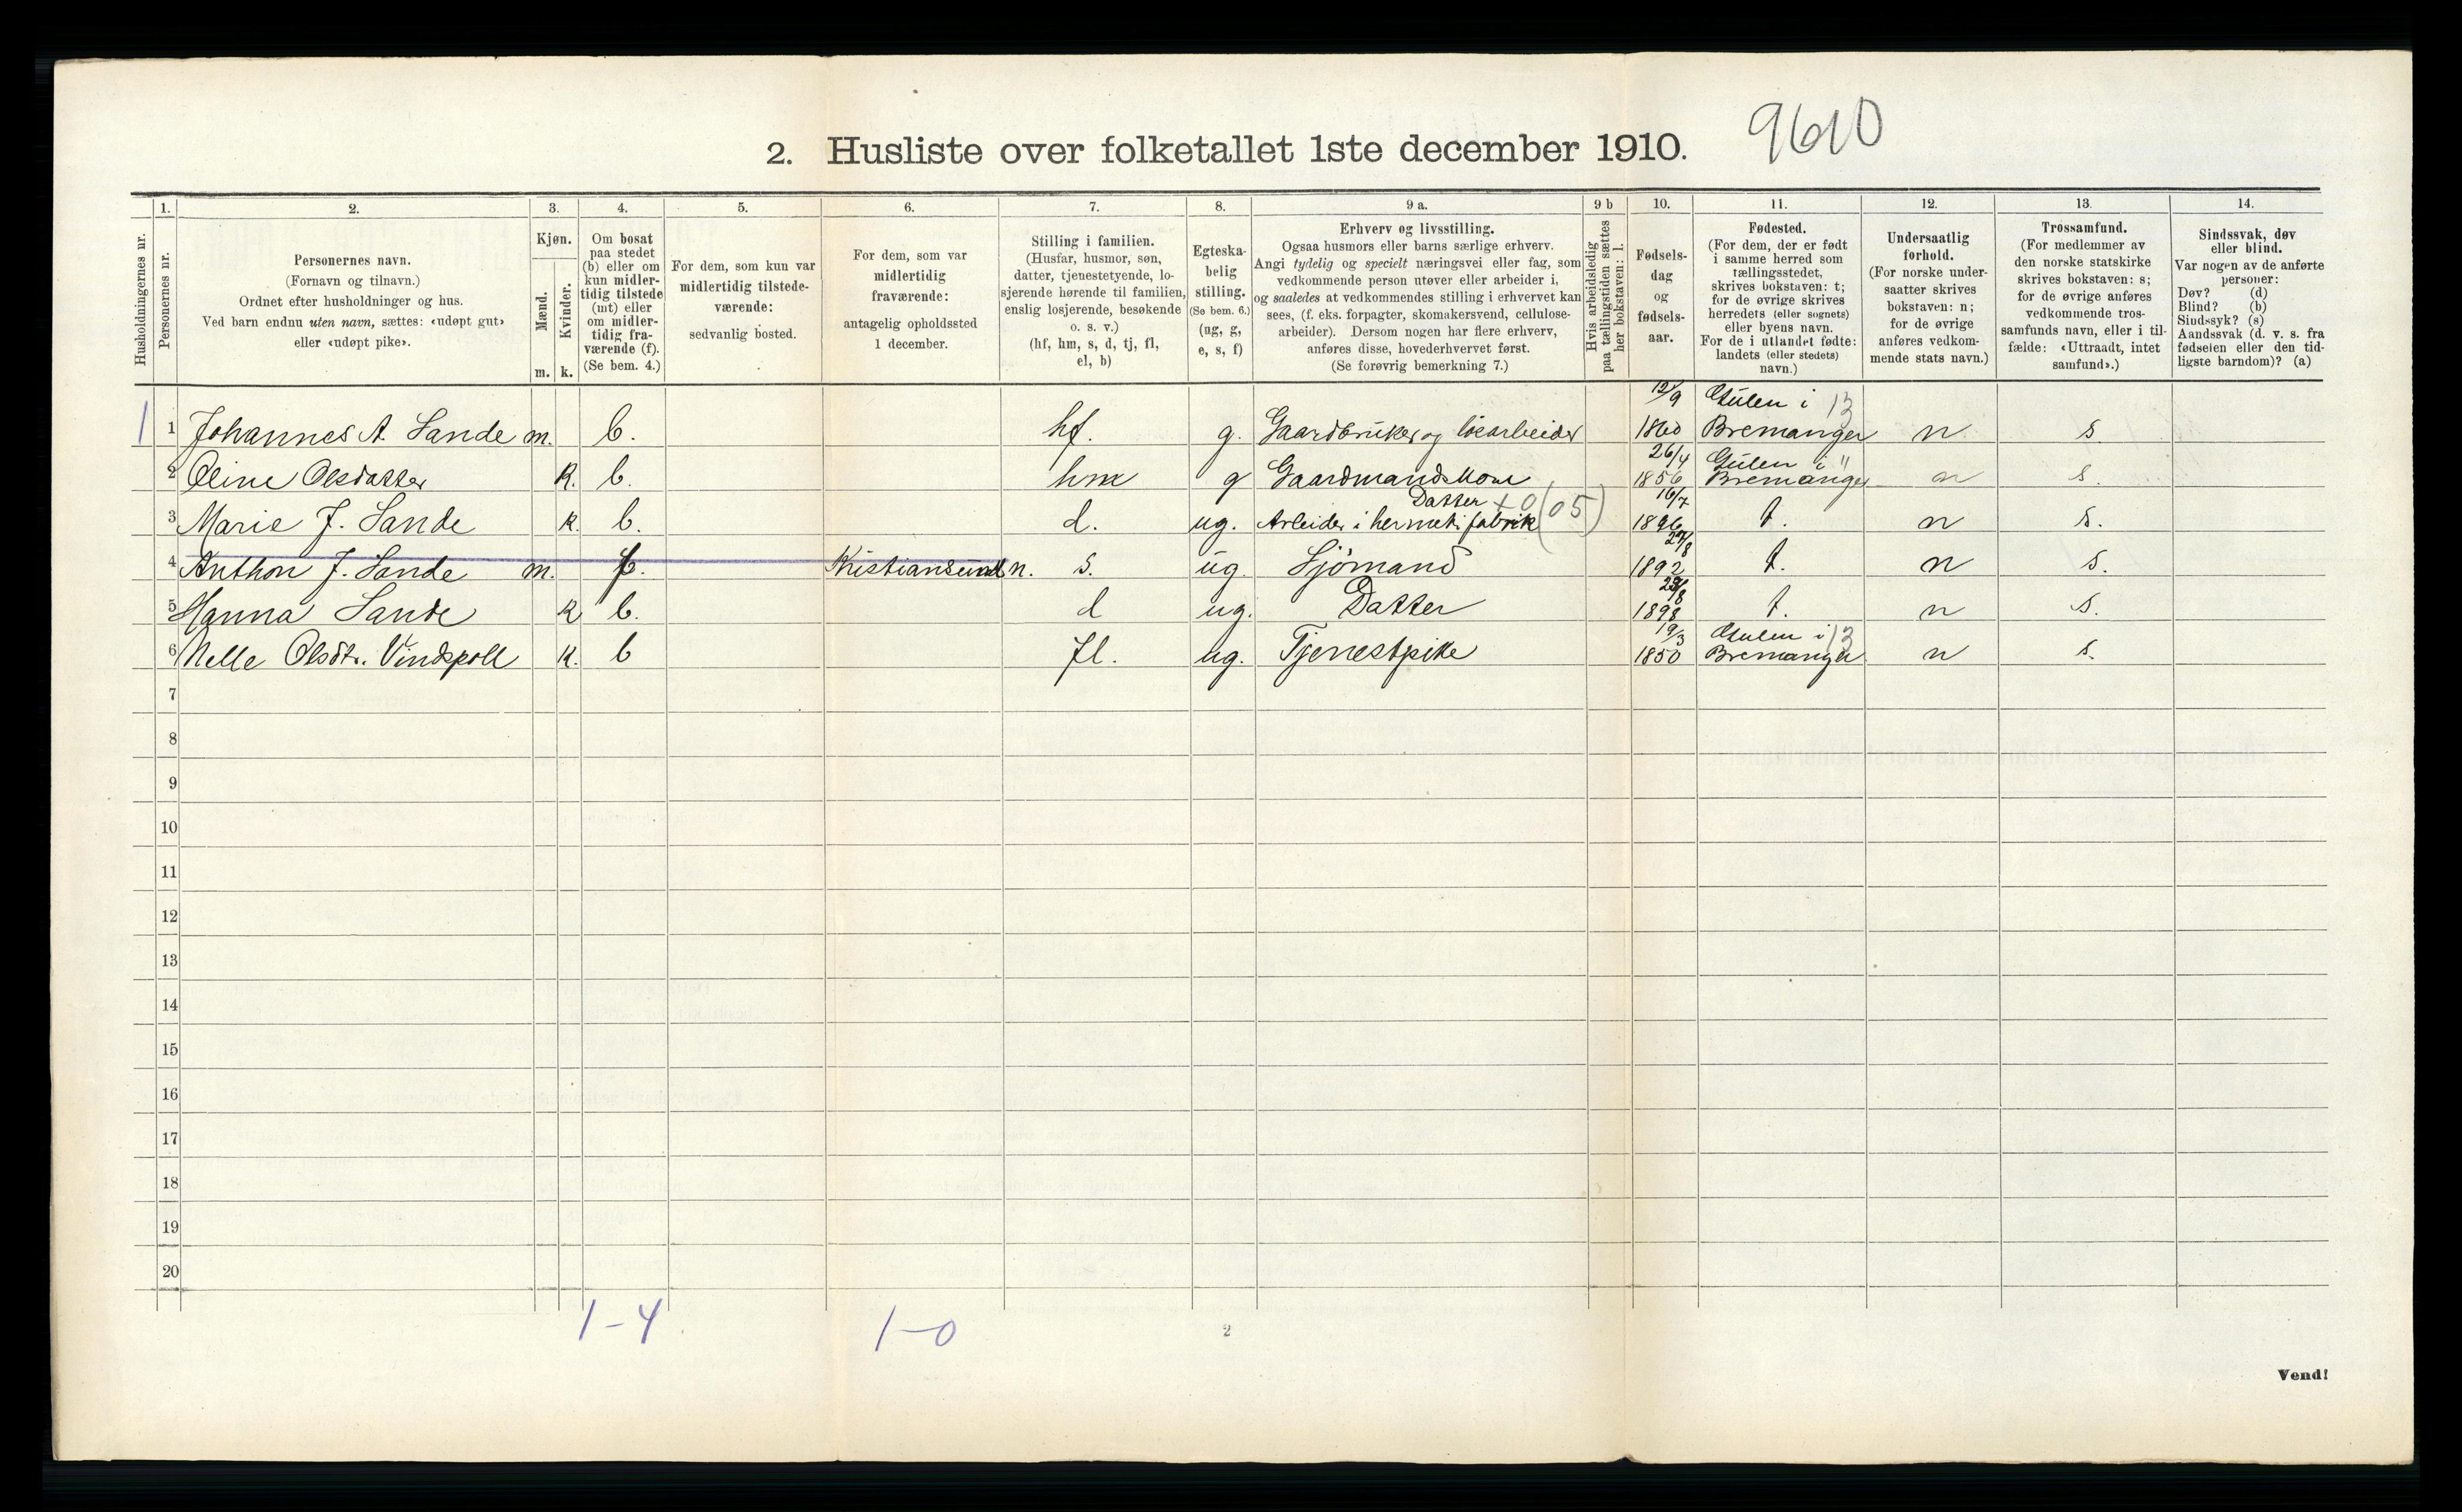 2. Husliste over folketallet 1ste december 1910. 9610
1. 2. 3. 4. 5. 6. 7. 8. 9 a. 9 b 10. 11. 12. 13. 14.
Husholdningernes nr.
Personernes nr.
Personernes navn.
(Fornavn og tilnavn.)
Ordnet efter husholdninger og hus.
Ved barn endnu uten navn, sættes: «udøpt gut»
eller «udøpt pike».
Kjøn.
Mænd.
Kvinder.
m. k.
Om bosat
paa stedet
(b) eller om
kun midler-
tidig tilstede
(mt) eller
om midler-
tidig fra-
værende (f).
(Se bem. 4.)
For dem, som kun var
midlertidig tilstede-
værende:
sedvanlig bosted.
For dem, som var
midlertidig
fraværende:
antagelig opholdssted
1 december.
Stilling i familien.
(Husfar, husmor, søn,
datter, tjenestetyende, lo-
sjerende hørende til familien,
enslig losjerende, besøkende
o. s. v.)
(hf, hm, s, d, tj, fl,
el, b)
Egteska-
belig
stilling.
(Se bem. 6.)
(ug, g,
e, s, f)
Erhverv og livsstilling.
Ogsaa husmors eller barns særlige erhverv.
Angi tydelig og specielt næringsvei eller fag, som
vedkommende person utøver eller arbeider i,
og saaledes at vedkommendes stilling i erhvervet kan
sees, (f. eks. forpagter, skomakersvend, cellulose-
arbeider). Dersom nogen har flere erhverv,
anføres disse, hovederhvervet først.
(Se forøvrig bemerkning 7.)
Hvis arbeidsledig
paa tællingstiden sættes
her bokstaven: l.
Fødsels-
dag
og
fødsels-
aar.
Fødested.
(For dem, der er født
i samme herred som
tællingsstedet,
skrives bokstaven: t;
for de øvrige skrives
herredets (eller sognets)
eller byens navn.
For de i utlandet fødte:
landets (eller stedets)
navn.)
Undersaatlig
forhold.
(For norske under-
saatter skrives
bokstaven: n;
for de øvrige
anføres vedkom-
mende stats navn.)
Trossamfund.
(For medlemmer av
den norske statskirke
skrives bokstaven: s;
for de øvrige anføres
vedkommende tros-
samfunds navn, eller i til-
fælde: «Uttraadt, intet
samfund».)
Sindssvak, døv
eller blind.
Var nogen av de anførte
personer:
Døv? (d)
Blind? (b)
Sindssyk? (s)
Aandssvak (d. v. s. fra
fødselen eller den tid-
ligste barndom)? (a)
12/9 Gulen i 13
1 1 Johannes A. Sande m. b. hf. g. Gaardbruker og løsarbeider 1860 Bremanger n s
26/4 Gulen i "
2 Oline Olsdatter k. b. hm g Gaardmandskone 1856 Bremanger n s.
Datter +0 (05) 16/7
3 Marie J. Sande k. b. d. ug. Arbeider i hermetikfabrik 1896 t. n s.
4 Anthon J. Sande m. f. Kristiansund n. s. ug. Sjømand 1892 t. n s.
5 Hanna Sande k b. d ug. Datter 1898 t. n s.
19/3 Gulen i 13
6 Nelle Olsdtr. Vindspoll k. b fl. ug. Tjenestpike 1850 Bremanger n s.
7
8
9
10
11
12
13
14
15
16
17
18
19
20
1-4 1-0
2
Vend!